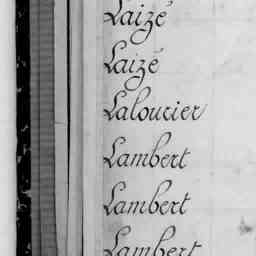 Laizé
Laizé
Lalourier
Lambert
Lambert
Lambert